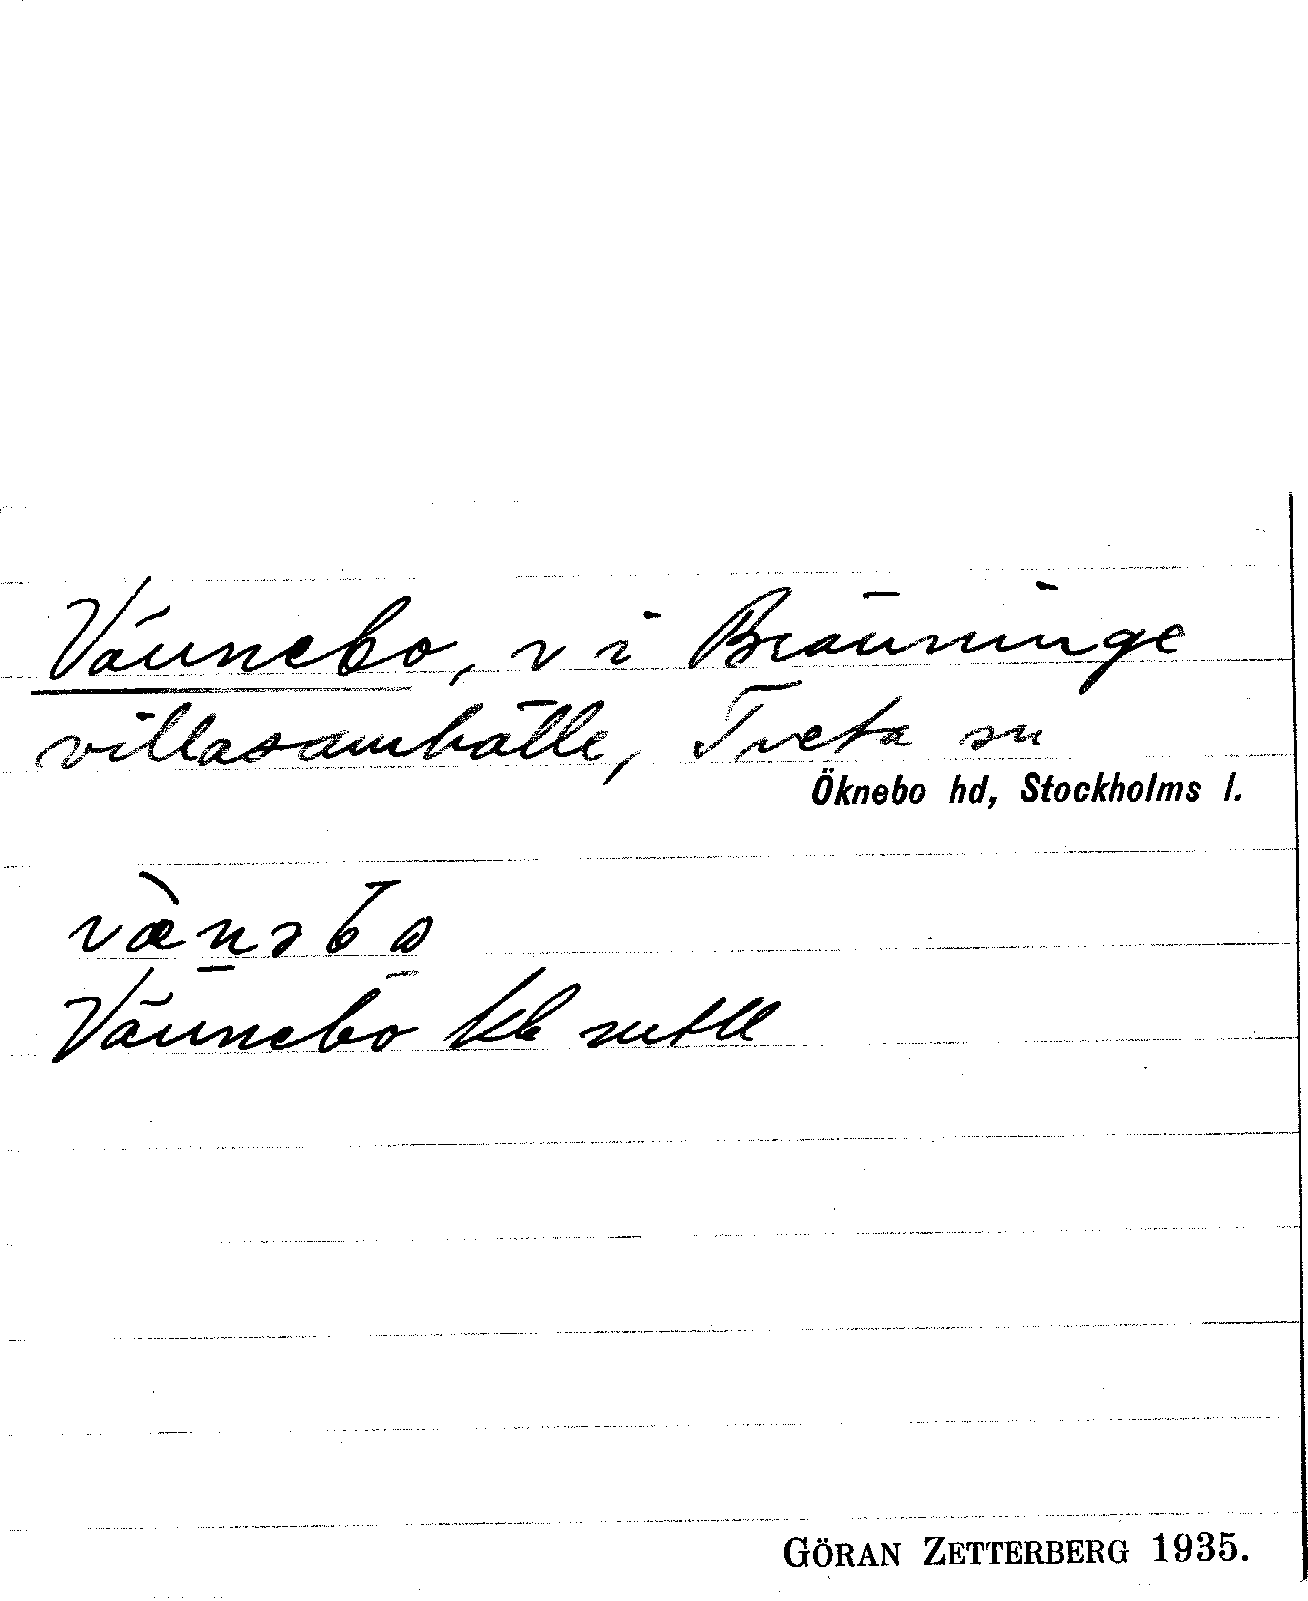 Vännebo, v i Bränninge
villasamhälle, Tveta sn
Öknebo hd, Stockholms l.
Vännebo kb
GÖRAN ZETTERBERG 1935.